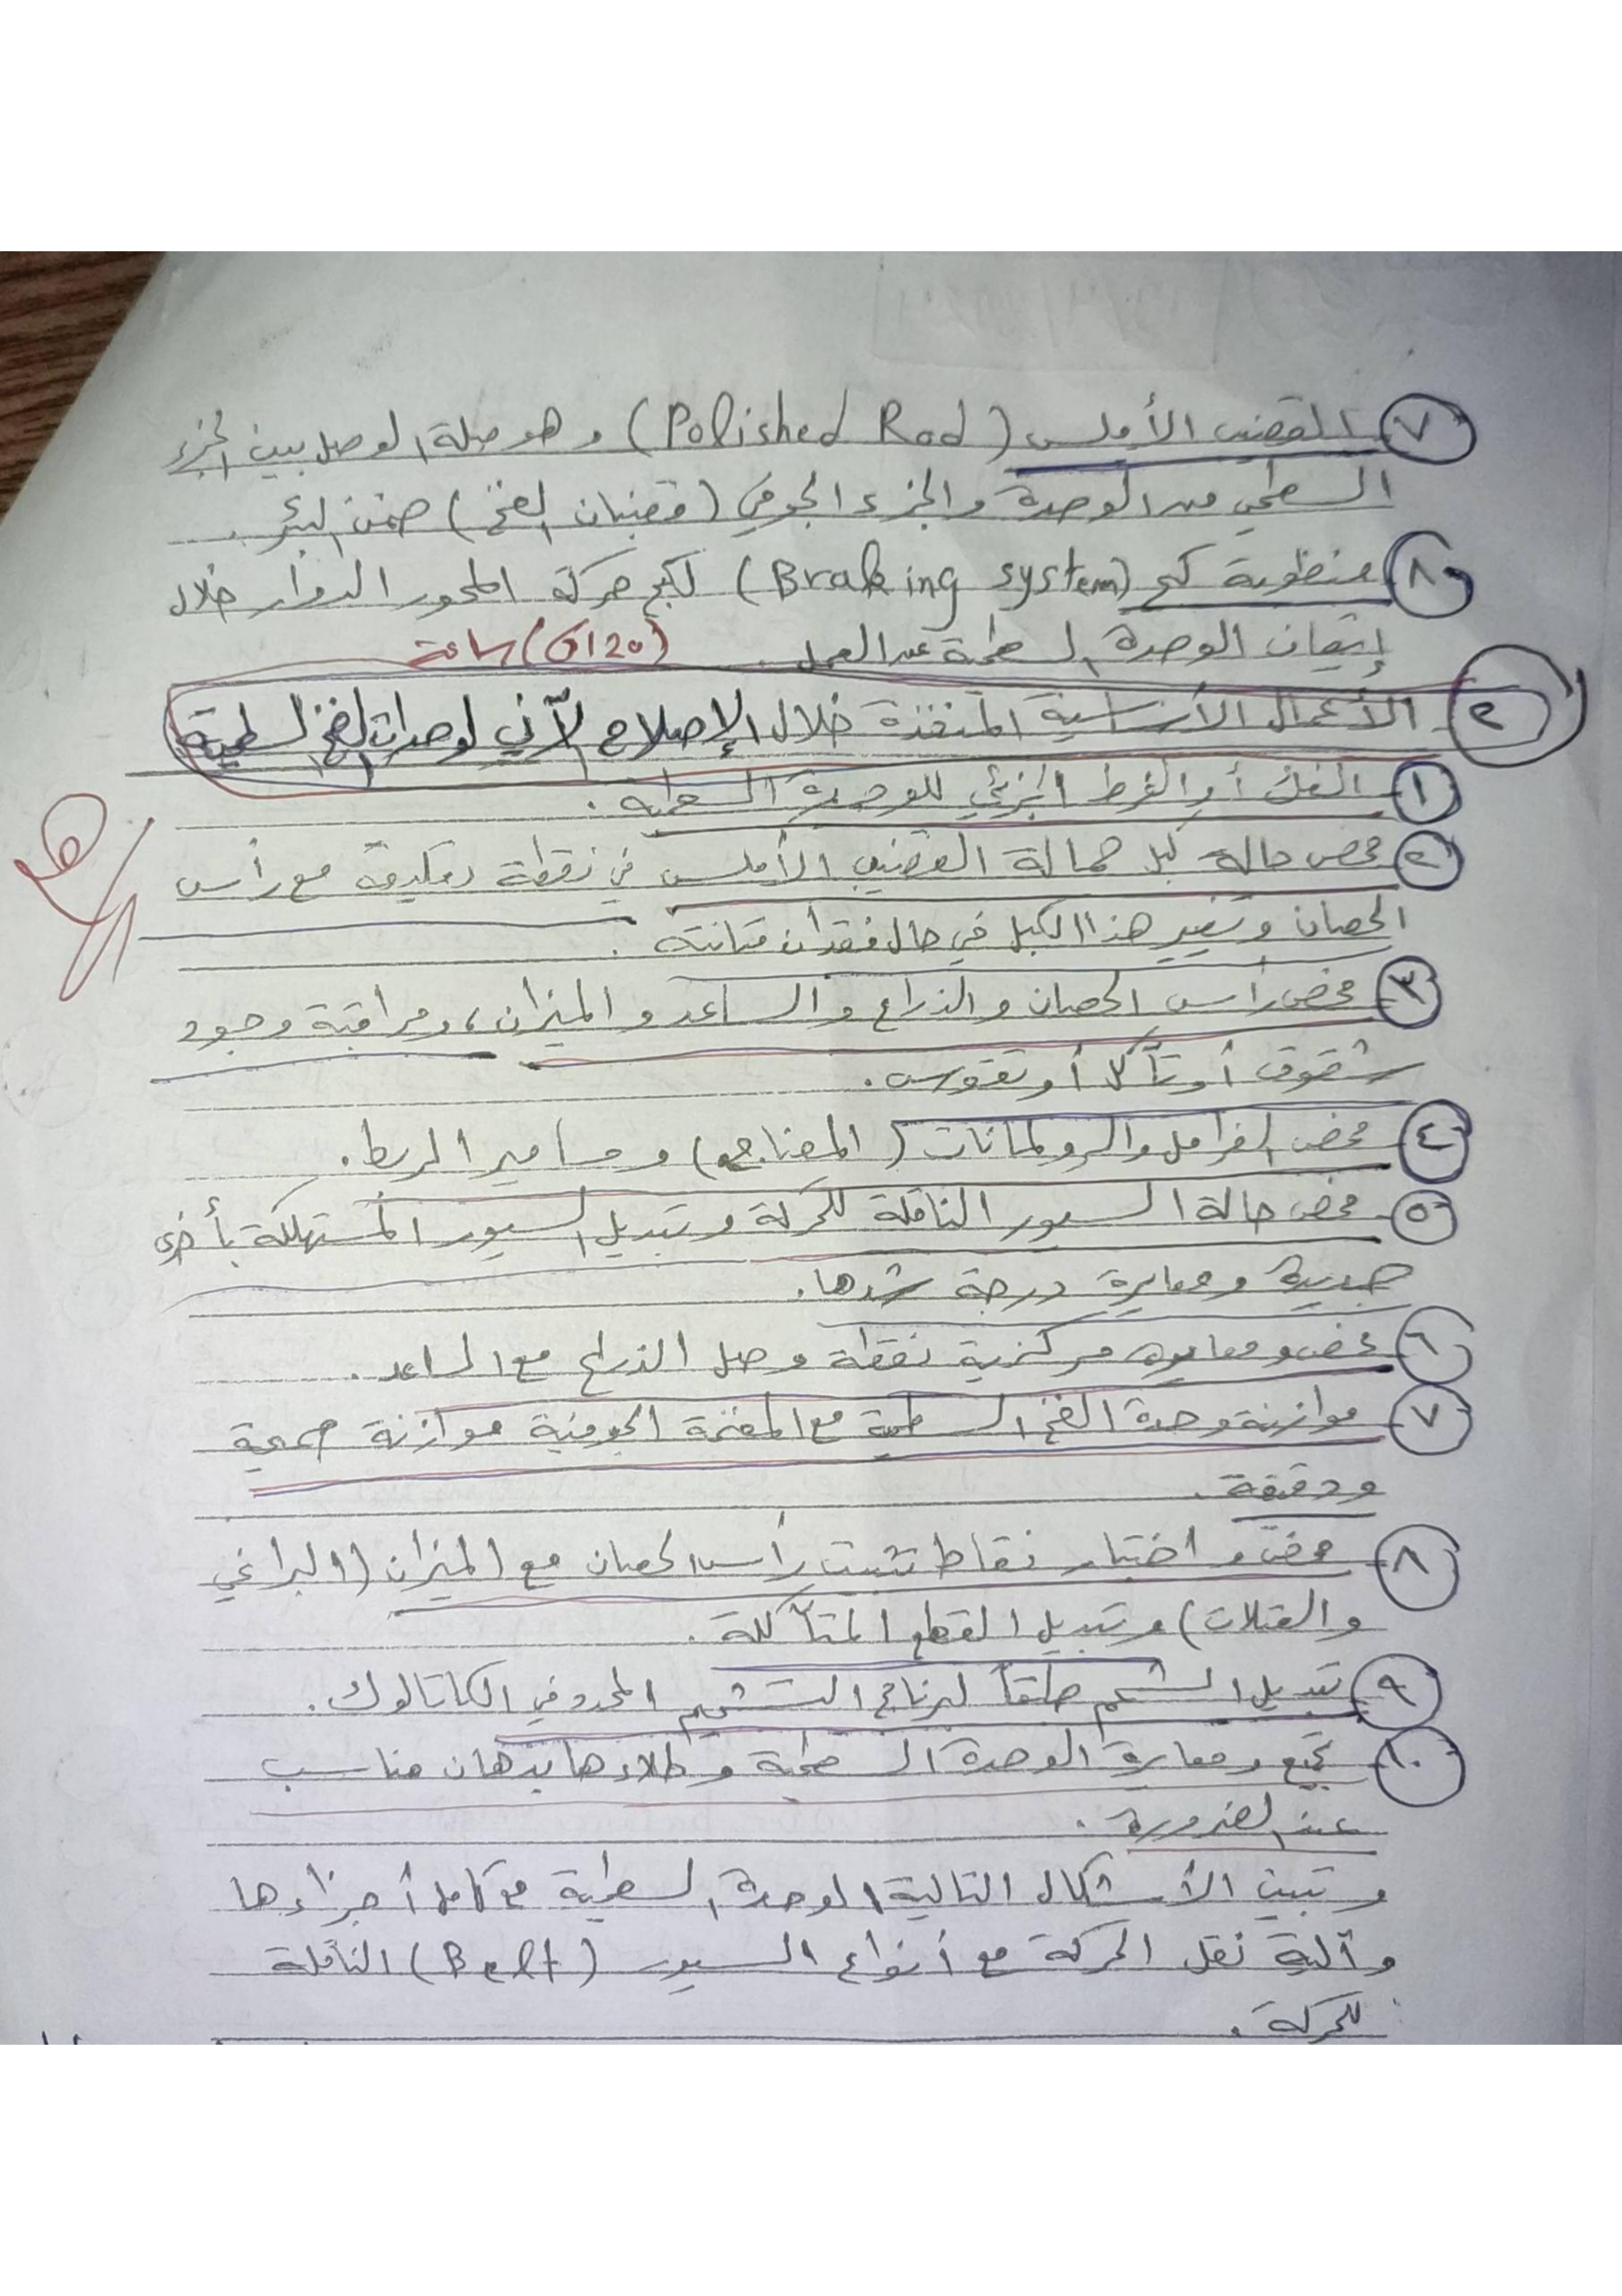 ٧ القضيب الأملس (Polished Rod) وهو صلة الوصل بين الجزء
السطحي من الوحدة والجزء الجوفي (قضبان الضخ) ضمن البئر.
٨ منظومة كبح (Braking system) لكبح حركة المحور الدوار خلال
إيقاف الوحدة السطحية عن العمل. ساعة
٢ الأعمال الأساسية المنفذة خلال الإصلاح الآني لوحدات الضخ السطحية
١ الفك أو الفرط الجزئي للوحدة السطحية.
٢ فحص حالة كبل حمالة القضيب الأملس في نقطة تعليقه مع رأس
الحصان وتغيير هذا الكبل في حال فقدان متانته.
٣ فحص رأس الحصان والذراع والساعد والميزان، ومراقبة وجود
شقوق أو تآكل أو تقوس.
٤ فحص الفرامل والرولمانات (المضاجع) ومسامير الربط.
٥ فحص حالة السيور الناقلة للحركة وتبديل السيور المستهلكة بأخرى
جديدة ومعايرة درجة شدها.
٦ فحص ومعايرة مركزية نقطة وصل الذراع مع الساعد.
٧ موازنة وحدة الضخ السطحية مع المضخة الجوفية موازنة صحيحة
ودقيقة.
٨ فحص واختبار نقاط تثبيت رأس الحصان مع الميزان (البراغي
والفتلات) وتبديل القطع المتآكلة.
٩ تبديل الشحم طبقاً لبرنامج التشحيم المحدد في الكاتالوك.
١٠ تجميع ومعايرة الوحدة السطحية وطلاءها بدهان مناسب
عند الضرورة.
وتبين الأشكال التالية الوحدة السطحية مع كامل أجزاءها
وآلية نقل الحركة مع أنواع السيور (Belt) الناقلة
للحركة.